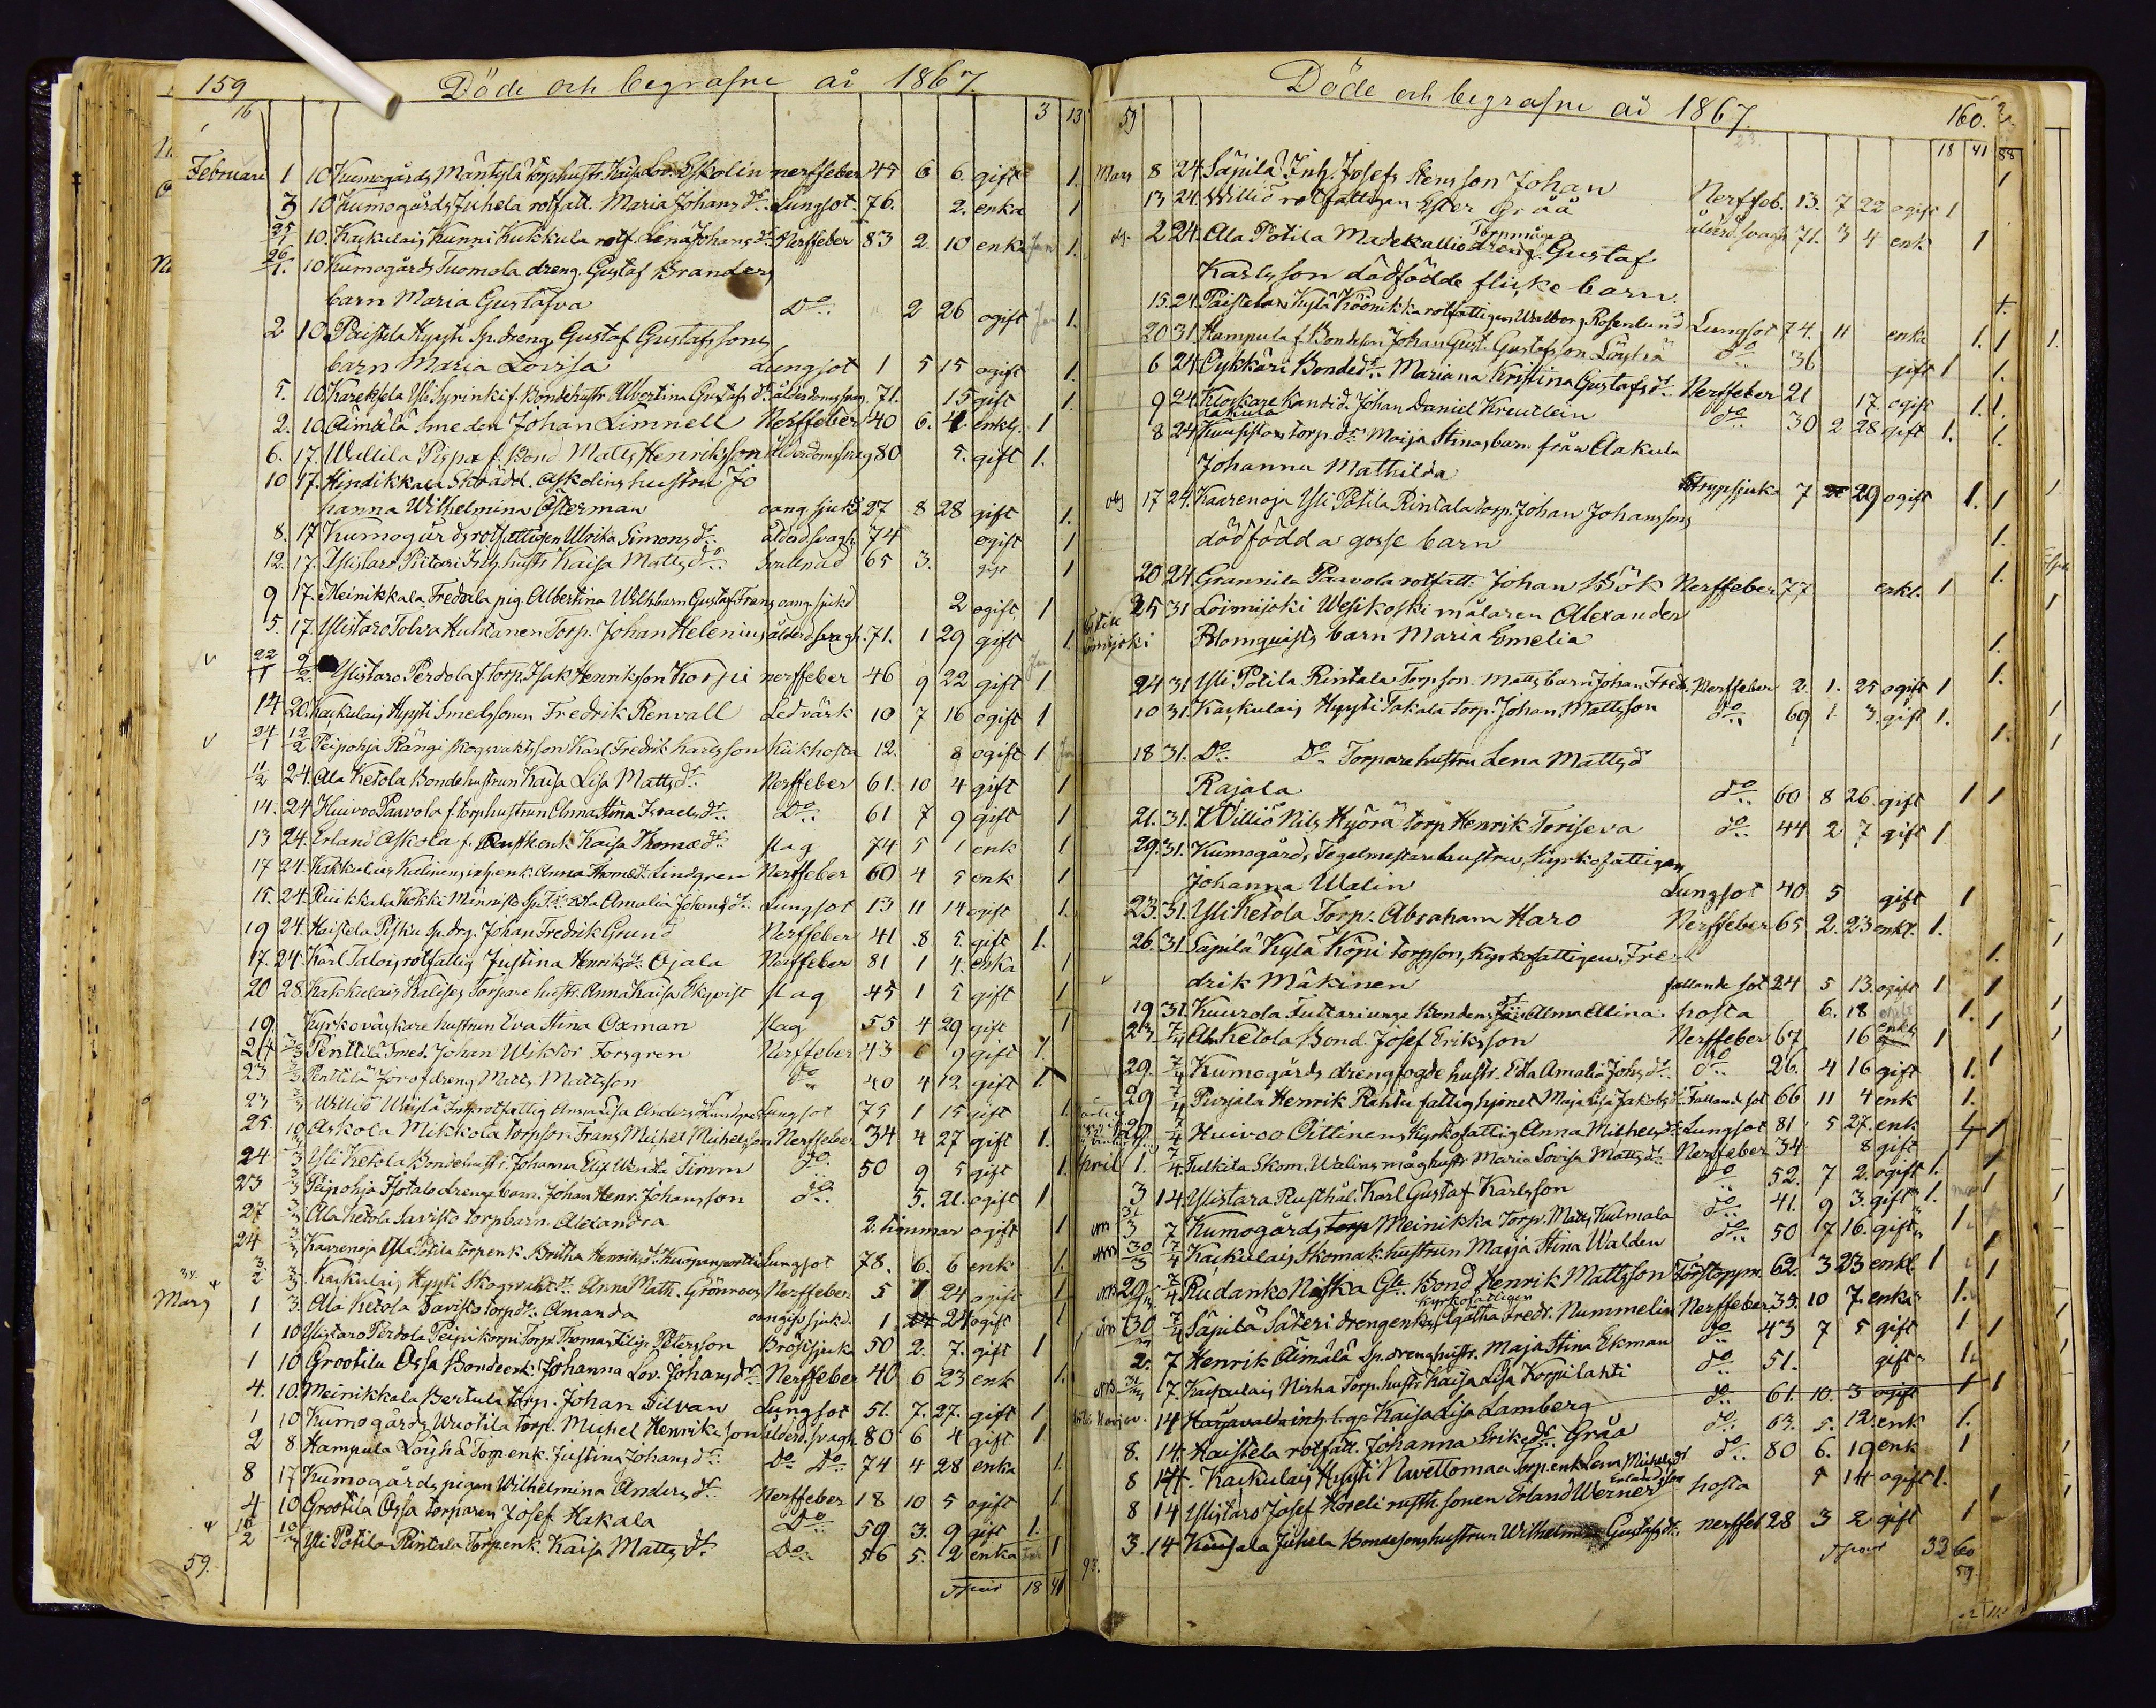 159 Döde och begrafne år 1867.
16 3 13
Februari 1 10 Kumogårds Mäntylä Torp.hustr. Kaisa Lov. Eskolin nerffeber 45 6 6. gift 1.
3 10 Kumogårds Juhela rotfatt. Maria Johans dr. Lungsot 76. 2. enka 1
25/1 10. Kackulais Kunni Kukkula rotf. Lena Johans dr. Nerffeber 83 2. 10 enka Jan 1.
26/1. 10 Kumogårds Tuomola dreng. Gustaf Branders
barn Maria Gustafva Do.. " 2 26 ogift Jan 1.
2 10 Paistila Hyysti Sp.dreng Gustaf Gustafssons
barn Maria Lovisa Lungsot 1 5 15 ogift 1.
5. 10. Kareksela Yli Syrinki f. Bondehustr. Albertina Gustafs dr. ålderdomssvag. 71. 15 gift 1.
2. 10. Äimälä Smeden Johan Limnell Nerffeber 40 6. 4. enkl. 1
6. 17. Wallila Pispa f. Bond Matts Henriksson Ålderdomssvag 80 5. gift 1.
10 17. Hindikkala Skrädd. Askolins hustru Jo
hanna Wilhelmina Österman oang. sjukd 27 8 28 gift 1.
8. 17 Kumogårds rotfattigen Ulrika Simons dr. ålderd.svagh 74 ogift 1
12. 17. Ylistaro Piitari Inh. hustr. Kaisa Matts dr. Svullnad 65 3. gift 1
9 17. Meinikkala Fredala pig. Albertina Wilh. barn Gustaf Frans oang. sjukd 2 ogift 1
5. 17. Ylistaro Tolvi Huhtanen Torp. Johan Helenius ålderd.svagh. 71. 1 29 gift 1.
22/1 2/2 Ylistaro Perdola f. torp. Isak Henriksson Korpi nerffeber 46 9 22 gift Jan 1
14 20. Kackulais Hyysti Smedssonen Fredrik Renvall Ledvärk 10 7 16 ogift 1
24/1 12/2 Peipohja Rängi skogsvaktsson Karl Fredrik Karlsson Kikhosta 12. 8 ogift 1 Jan
11/2 24. Ala Ketola Bondehustrun Kaisa Lisa Matts dr. Nerffeber 61. 10 4 gift 1
14. 24 Huivoo Paavola f. torp.hustrun Anna Stina Israels dr. Do.. 61 7 9 gift 1
13 24. Erland Askola f. Rusth.enk. Kaisa Thomæ dr. slag 74 5 1 enk 1
17 24. Kakkulais Kalinens inh.enk. Anna Thomæ dr. Lindgren Nerffeber 60 4 5 enk 1
15. 24. Ruikkala Kökki Männistö Sp. Edla Amalia Johans dr. Lungsot 13 11 14 ogift 1.
19 24. Haistela Pisku Sp. drg. Johan Fredrik Grund Nerffeber 41 8 5. gift 1.
17. 24. Karl Talois rotfattig Justina Henriks dr. Ojala Nerffeber 81 1 4. enka 1
20 28. Kakkulais Kalises Torpare hustr. Anna Kaisa Ekqvist slag 45 1 5 gift 1
19. Kyrkoväktare hustrun Eva Stina Oxman slag 55 4 29 gift 1
24 3/3 Penttilä Smed. Johan Wiktor Forsgren Nerffeber 43 6 9 gift 1.
23 3/3 Penttilä Jor of dreng Matts Mattsson do 40 4 12. gift 1.
23 3/3 Willio Uusylä Inh. rotfattig Anna Lisa Anders dr Lundgren Lungsot 75 1 15 gift 1.
25 10/3 Askola Mikkola torpson Frans Michel Michelsson Nerffeber 34 4 27 gift 1.
24 3/3 Yli Ketola Bondehustr. Johanna Elis Wendla Timm do. 50 9 5 gift 1.
23 3/3 Peipohja Isotalo drenge barn. Johan Henr. Johansson do.. 5. 21. ogift 1
27 3/3 Ala Ketola Savisto torp barn Alexandra 2. timmar ogift 1
24 3/3 Kaarenoja Ala Potila torp enk. Britha Henriks dr. Lungsot 78. 6. 6 enk 1.
3/2 3/3. Kackulais Hyysti Skogsvakt dr. Anna Math. Grönroos Nerffeber 5 1 24 ogift 1.
Mars 1 3. Ala Ketola Savisto torp dr. Amanda oangif. sjukd. 1. 24 ogift 1
1 10 Ylistaro Perdola Peipi korpi Torp. Thomas Filip. Petersson Bröstsjuka 50 2. 7. gift 1
1 10 Grootila Ossa Bondeenk. Johanna Lov. Johans dr. Nerffeber 40 6 23 enk 1.
4. 10. Meinikkala Bertula torp. Johan Silvan Lungsot 51. 7. 27. gift 1
1 10 Kumogårds Wuotila torp. Michel Henriksson ålderd.svagh. 80 6 4 gift 1
2 8 Hampula Löyhä Torp.enk. Justina Johans dr. Do. Do. 74 4 28 enka 1.
8 17 Kumogårds pigan Wilhelmina Anders dr. Nerffeber 18 10 5 ogift 1.
4 10 Grootila Ossa torparen Josef Hakala Do.. 59 3. 9 gift 1.
10/2 10/3 Yli Potila Rintala Torpenk. Kaisa Matts dr. Do.. 56 5. 2 enka 1
59. Transp. 18 41
Döde och begrafne år 1867. 160.
59 18 41 88
Mars 8 24 Säpilä Inh. Josefs Stensson Johan Nerffeb. 13. 7 22 ogift 1
13 24. Willio rotfattigen Ester Gråå ålderd. svagh 71. 3 4 enk 1
2 24. Ala Potila Madekallio Torpmåg dreng. Gustaf
Karlsson dödfödde flicke barn.
15. 24. Paistila Kylä Köönikkä rotfattigen Walborg Rosenlund Lungsot 74. 11 enka 1.
20 31 Hampula f. Bondeson Johan Gust. Gustafsson Löyhä do.. 36 gift 1
6 24 Pykkäri Bonde dr.. Mariana Kristina Gustafs dr. Nerffeber 21 17. ogift 1.
9 24 Klockare kandid. Johan Daniel Kreutlein do.. 30 2 28 gift 1.
8 24 Kuusistos torp. dr Maija Stinas barn från Aakula
Johanna Mathilda Strypsjuka 7 29 ogift 1.
17 24. Kaarenoja Yli Potila Rintala torp. Johan Johanssons
dödfödda gosse barn
20 24. Grannila Paavola rotfatt. Johan Böök Nerffeber 77 enkl. 1
25 31 Loimijoki Wesikoski målaren Alexander
Blomqvists barn Maria Emelia
24 31 Yli Potila Rintala Torp son Matts barn Johan Fred. Nerffeber 2. 1. 25 ogift 1
10 31. Kackulais Hyysti Takala torp. Johan Mattsson do.. 69 1. 3. gift 1.
18 31. Do. Do. Torpare hustru Lena Matts dr
Rajala do.. 60 8 26. gift 1
21. 31. Williö Nils Hyörä torp Henrik Toriseva do.. 44 2 7 gift 1
29. 31. Kumogårds Tegelmestare hustru, Kyrkofattigen
Johanna Walin Lungsot 40 5 gift 1
23. 31. Yli Ketola Torp. Abraham Haro Nerffeber 65 2. 23 enkl. 1.
26. 31. Säpilä Kylä Köpi torpson, Kyrkofattigen Fre
drik Mäkinen fallande sot 24 5 13. ogift 1
19 31. Kuurola Tuttari unge Bondens dr. Alma Alina. hosta 6. 18 ogift 1.
23 7/4 Ala Ketola Bond. Josef Eriksson Nerffeber 67 16 enkl 1
29. 7/4 Kumogårds drengfogde hustr. Edla Amalia Johs dr. do.. 26. 4 16 gift 1.
29 7/4 Purjala Henrik Rahtu fattighjonet Maja Lisa Jakobs dr. Fallande sot 66 11 4 enk 1.
29. 7/4 Huivoo Pittinens Kyrkofattig Anna Michels dr. Lungsot 81 5 27. enk 1
April 1. 7/4 Tulkila Skom. Walins måg hustr Maria Lovisa Matts dr. Nerffeber 34 8 gift 1
3 14. Ylistara Rusthål. Karl Gustaf Karlsson do 52. 7 2. ogift 1.
31/3 7 Kumogårds torp Meinikka Torp. Matts Kulmala do.. 41. 9 3. gift 1.
30/3 7/4 Kackulais Skomak. hustrun Maja Stina Walden do.. 50 7 16. gift 1.
29 7/4 Rudanko Niska Gle. Bond Henrik Mattsson Förstoppn. 62. 3 23 enkl 1
30 7/4 Säpilä Säteri drengenka, kyrkofattigen Agatha Fredr. Nummelin Nerffeber 35. 10 7. enka 1.
2. 7 Henrik Äimälä Sp. drenghustr. Maja Stina Ekman do 43 7 5 gift 1
31/3 7 Kackulais Nisha Torp. hustr Kaisa Lisa Korpilahti do. 51. gift 1.
14 Harjavalda inh. l. gr Kaisa Lisa Lamberg do.. 61. 10. 3 ogift 1
8. 14. Haistela rotfatt. Johanna Eriks dr.. Gråå do.. 63. 5. 12. enk 1.
8 14. Kackulais Hyysti Navettomaa torp.enk. Lena Michels dr do.. 80 6. 19 enk 1
8 14 Ylistaro Josef Horeli rusth. sonen Erland Werner Erlandsson hosta 5 14 ogift 1.
3. 14 Juhela Bondesons hustrun Wilhelmina Gustafs dr. nerffeb 28 3 2 gift 1
93. Transport 33 60
59